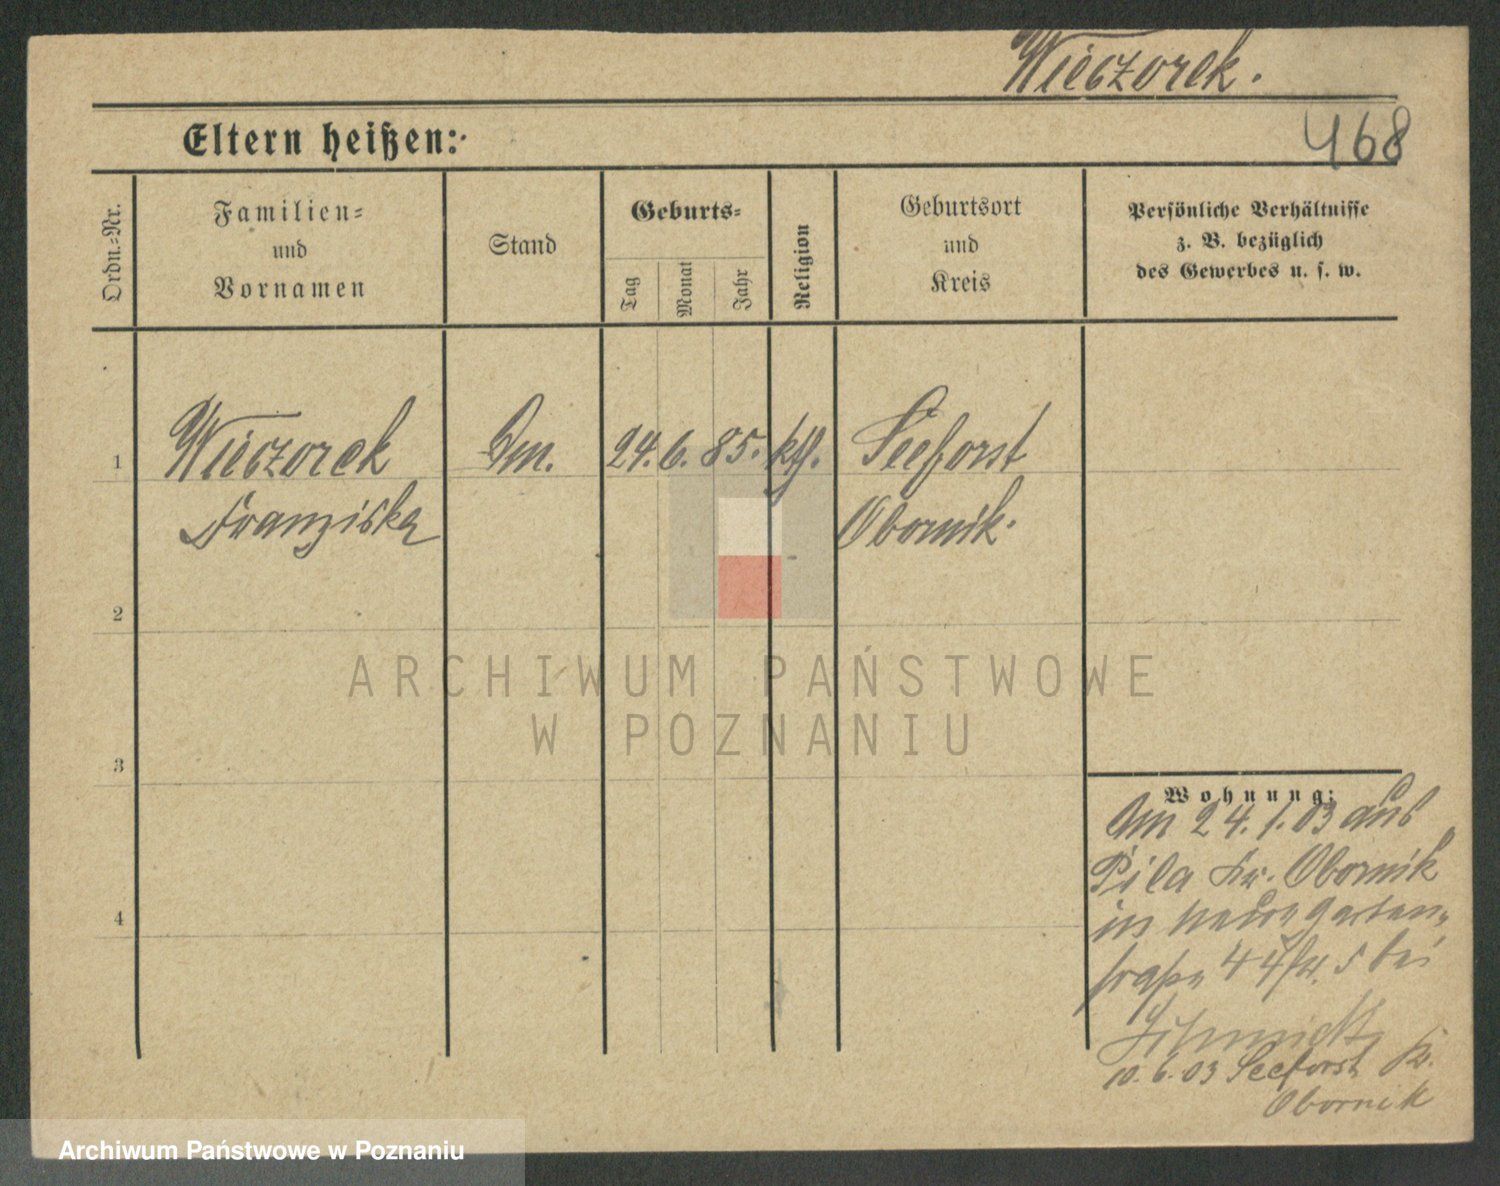 Wieczorek.
468
Eltern heißen:
Ordn.=Nr.
Familien=
und
Vornamen
Stand
Geburts=
Tag
Monat
Jahr
Religion
Geburtsort
und
Kreis
Persönliche Verhältnisse
z. B. bezüglich
des Gewerbes u. s. w.
1
Wieczorek
Franziska
24. 6. 85. kth.
Seeforst
Obornik.
2
3
4
Wohnung:
Am 24. 1. 03 aus
Pila Kr. Obornik
in
straße 44 bei
10. 6. 03 Seeforst Kr.
Obornik
ARCHIWUM PAŃSTWOWE
W POZNANIU
Archiwum Państwowe w Poznaniu